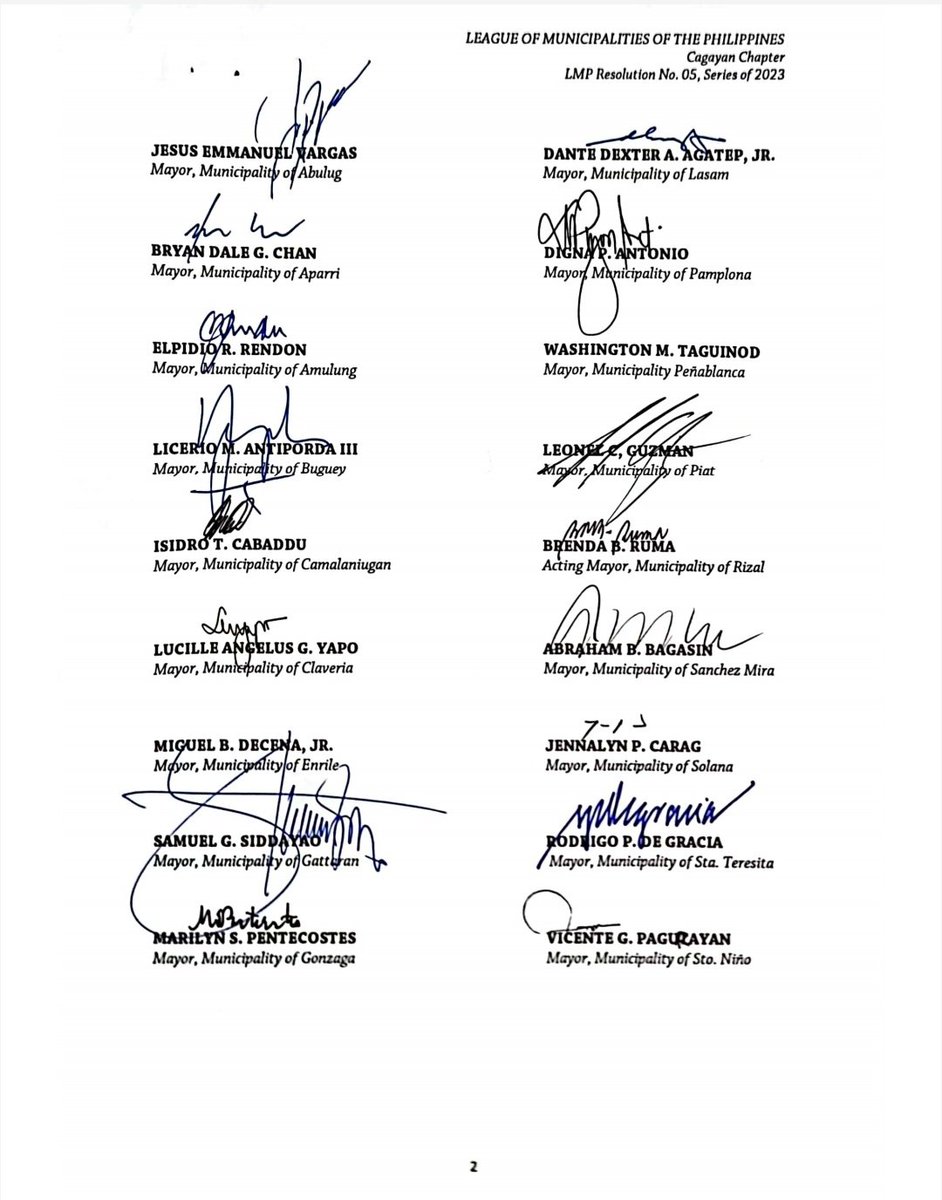 LEAGUE OF MUNICIPALITIES OF THE PHILIPPINES
Cagayan Chapter
LMP Resolution No. 05, Series of 2023
JESUS EMMANUEL VARGAS
Mayor, Municipality of Abulug
BRYAN DALE G. CHAN
Mayor, Municipality of Aparri
ELPIDIO R. RENDON
Mayor, Municipality of Amulung
LICERIO M. ANTIPORDA III
Mayor, Municipality of Buguey
ISIDRO T. CABADDU
Mayor, Municipality of Camalaniugan
LUCILLE ANGELUS G. YAPO
Mayor, Municipality of Claveria
MIGUEL B. DECENA, JR.
Mayor, Municipality of Enrile
SAMUEL G. SIDDAYAO
Mayor, Municipality of Gattaran
MARILYN S. PENTECOSTES
Mayor, Municipality of Gonzaga
DANTE DEXTER A. AGATEP, JR.
Mayor, Municipality of Lasam
DIGNA P. ANTONIO
Mayor, Municipality of Pamplona
WASHINGTON M. TAGUINOD
Mayor, Municipality Peñablanca
LEONEL C, GUZMAN
Mayor, Municipality of Piat
BRENDA B. RUMA
Acting Mayor, Municipality of Rizal
ABRAHAM B. BAGASIN
Mayor, Municipality of Sanchez Mira
JENNALYN P. CARAG
Mayor, Municipality of Solana
RODRIGO P. DE GRACIA
Mayor, Municipality of Sta. Teresita
VICENTE G. PAGURAYAN
Mayor, Municipality of Sto. Niño
2